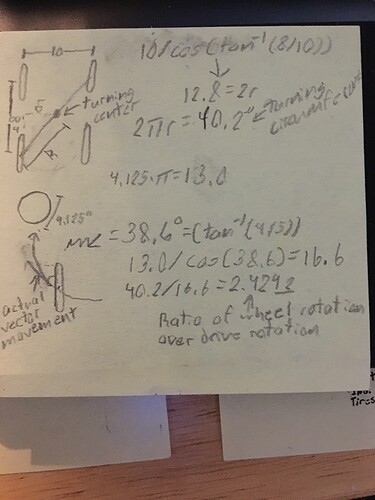 10
10/cos(tan⁻¹(8/10))
12.8=2r
turning center
8
5
4
R
2πr=40.2" turning circumference
4.125·π=13.0
4.125"
=38.6°=(tan⁻¹(4/5))
13.0/cos(38.6)=16.6
40.2/16.6=2.4292
actual vector movement
Ratio of wheel rotation
over drive rotation
Tires